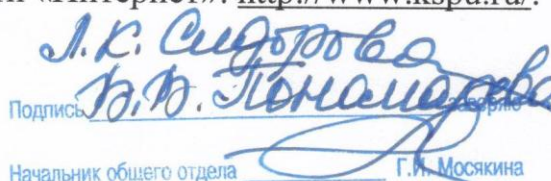 «Интернет»: http://www.kspu.ru/.
Л.К. Сидорова
Подпись В.В. Пономарева заверяю
Начальник общего отдела Г.И. Мосякина